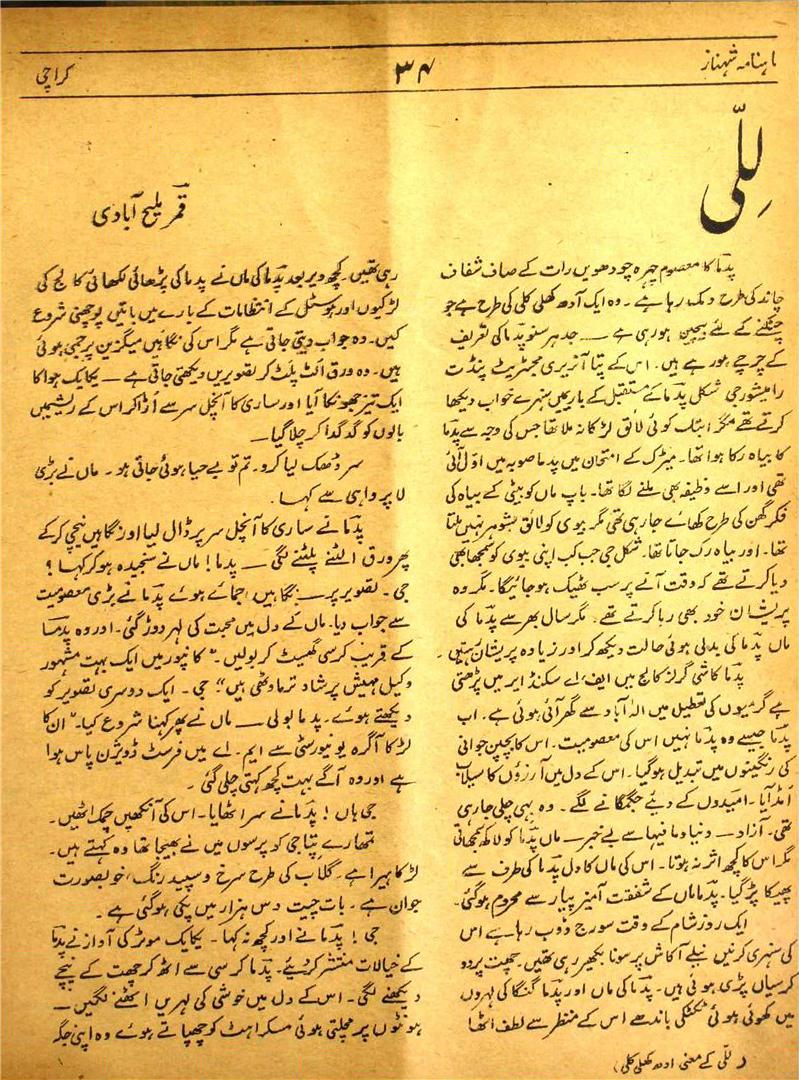 ماہنامہ شہناز
۳۴
کراچی
لِلّی
قمر ملیح آبادی
پدما کا معصوم چہرہ چودھویں رات کے صاف شفاف
چاند کی طرح دمک رہا ہے ۔ وہ ایک آدھ کھلی کلی کی طرح ہے جو
چٹکنے کے لئے بیچین ہو رہی ہے — جدہر سنو پدما کی تعریف
کے چرچے ہو رہے ہیں ۔ اس کے پتا آنریری مجسٹریٹ پنڈت
رامیشور جی شکل پدما کے مستقبل کے بارمیں سنہرے خواب دیکھا
کرتے تھے مگر ابتک کوئی لائق لڑکا نہ ملا تھا جس کی وجہ سے پدما
کا بیاہ رکا ہوا تھا ۔ میٹرک کے امتحان میں پدما صوبہ میں اوّل آئی
تھی اور اسے وظیفہ بھی ملنے لگا تھا ۔ باپ ماں کو بیٹی کے بیاہ کی
فکر گھن کی طرح کھائے جا رہی تھی مگر بیوی کو لائق شوہر نہیں ملتا
تھا ۔ اور بیاہ رک جاتا تھا ۔ شکل جی جب کب اپنی بیوی کو سمجھا بھی
دیا کرتے تھے کہ وقت آنے پر سب ٹھیک ہو جائیگا ۔ مگر وہ
پریشان خود بھی رہا کرتے تھے ۔ مگر سال بھر سے پدما کی
ماں پدما کی بدلی ہوئی حالت دیکھ کر اور زیادہ پریشان رہتیں ۔
پدما کاشی گرلز کالج میں ایف، اے سکنڈ ایر میں پڑھتی
ہے گرمیوں کی تعطیل میں الہ آباد سے گھر آئی ہوئی ہے ۔ اب
پدما جیسے وہ پدما نہیں اس کی معصومیت ۔ اس کا بچپن جوانی
کی رنگینیوں میں تبدیل ہو گیا ۔ اس کے دل میں آرزوں کا سیلاب
امڈ آیا ۔ امیدوں کے دیئے جگمگانے لگے ۔ وہ بہی چلی جا رہی
تھی ۔ آزاد — دنیا و ما فیہا سے بے خبر — ماں پدما کو لاکھ سمجھاتی
مگر اس کا کچھ اثر نہ ہوتا ۔ اس کی ماں کا دل پدما کی طرف سے
پھیکا پڑ گیا ۔ پدما ماں کے شفقت آمیز پیار سے محروم ہو گئی ۔
ایک روز شام کے وقت سورج ڈوب رہا ہے اس
کی سنہری کرنیں نیلے آکاش پر سونا بکھیر رہی تھیں ۔ چھت پر دو
کرسیاں پڑی ہوئی ہیں ۔ پدما کی ماں اور پدما گنگا کی لہروں
میں کھوئی ہوئی ٹکٹکی باندھے اس کے منظر سے لطف اٹھا
( للّی کے معنی ادھ کھلی کلی )
رہی تھیں ۔ کچھ دیر بعد پدما کی ماں نے پدما کی پڑھائی لکھائی کالج کی
لڑکیوں اور ہوسٹل کے انتظامات کے بارے میں باتیں پوچھنی شروع
کیں ۔ وہ جواب دیتی جاتی ہے مگر اس کی نگاہیں میگزین پر جمی ہوئی
ہیں ۔ وہ ورق الٹ پلٹ کر تصویریں دیکھتی جاتی ہے — یکایک ہوا کا
ایک تیز جھونکا آیا اور ساری کا آنچل سر سے اڑا کر اس کے ریشمیں
بالوں کو گدگدا کر چلا گیا —
سر ڈھک لیا کرو ۔ تم تو بے حیا ہوئی جاتی ہو ۔ ماں نے بڑی
لا پرواہی سے کہا ۔
پدما نے ساری کا آنچل سر پر ڈال لیا اور نگاہیں نیچی کر کے
پھر ورق الٹنے پلٹنے لگی — پدما ! ماں نے سنجیدہ ہو کر کہا ؟
جی ۔ تصویر پر — نگاہیں جمائے ہوئے پدما نے بڑی معصومیت
سے جواب دیا ۔ ماں کے دل میں محبت کی لہر دوڑ گئی ۔ اور وہ پدما
کے قریب کرسی گھسیٹ کر بولیں ۔ " کانپور میں ایک بہت مشہور
وکیل مہیش پرشاد ترماوٹھی ہیں " ؛ جی ۔ ایک دوسری تصویر کو
دیکھتے ہوئے ۔ پدما بولی — ماں نے پھر کہنا شروع کیا ۔ " ان کا
لڑکا آگرہ یونیورسٹی سے ایم ۔ اے میں فرسٹ ڈویژن پاس ہوا
ہے اور وہ آگے بہت کچھ کہتی چلی گئی ۔
جی ہاں ! پدما نے سر اٹھایا ۔ اس کی آنکھیں چمک اٹھیں ۔
تمھارے پتا جی کو پرسوں میں نے بھیجا تھا وہ کہتے ہیں ۔
لڑکا ہیرا ہے ۔ گلاب کی طرح سرخ و سپید رنگ ، خوبصورت
جوان ہے ۔ بات چیت دس ہزار میں پکی ہو گئی ہے ۔
جی ! پدما نے اور کچھ نہ کہا ۔ یکایک موٹر کی آواز نے پدما
کے خیالات منتشر کر دیئے ۔ پدما کرسی سے اٹھ کر چھت کے نیچے
دیکھنے لگی ۔ اس کے دل میں خوشی کی لہریں اٹھنے لگیں —
ہونٹوں پر مچلتی ہوئی مسکراہٹ کو چھپاتے ہوئے وہ اپنی جگہ